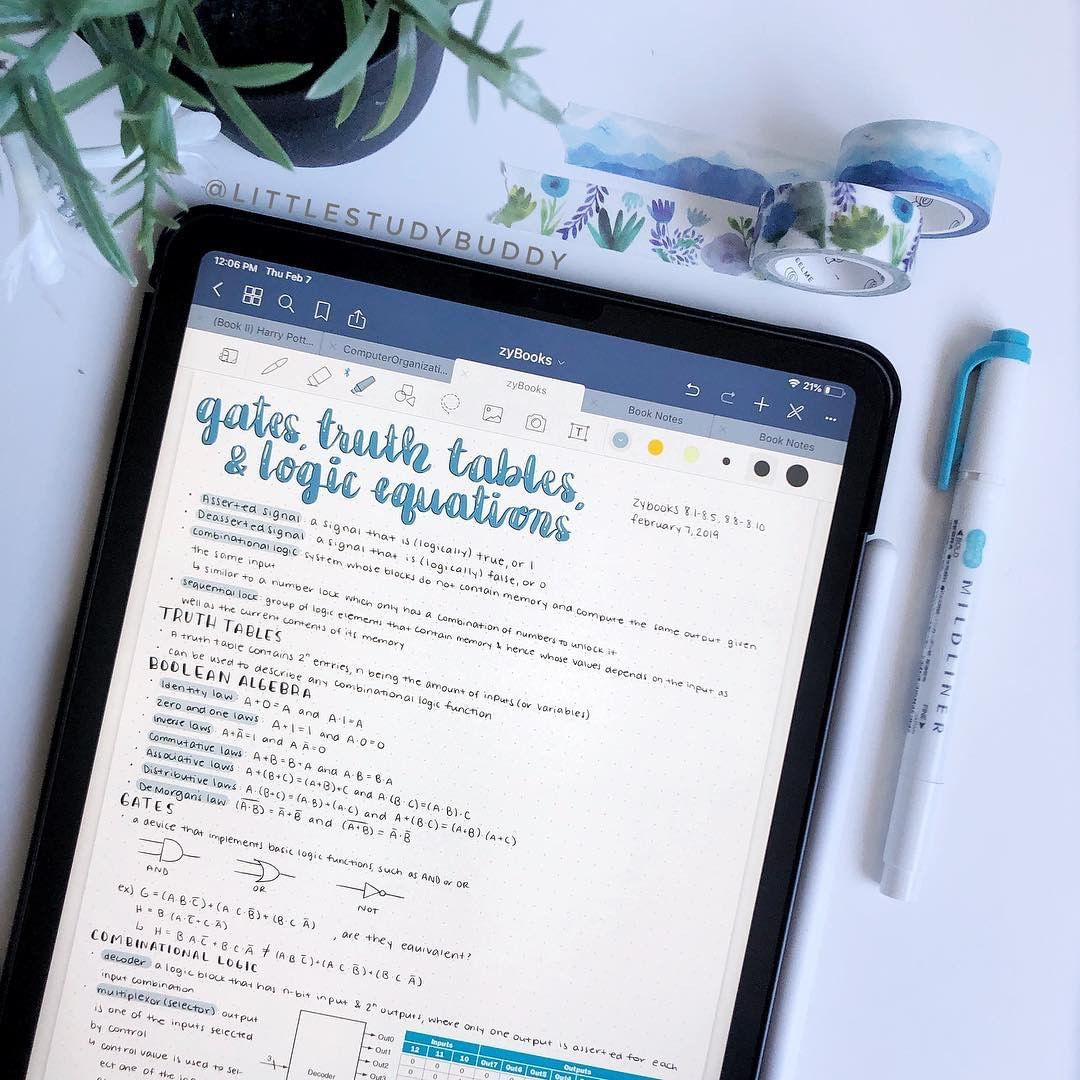 @LITTLESTUDYBUDDY
12:06 PM Thu Feb 7
21%
zyBooks
(Book Ii) Harry Pott...
ComputerOrganizati...
zyBooks
Book Notes
Book Notes
gates, truth tables,
& logic equations
zybooks 8.1-8.5, 8.8-8.10
february 7, 2019
• Asserted signal: a signal that is (logically) true, or 1
• Deasserted signal: a signal that is (logically) false, or 0
• combinational logic: system whose blocks do not contain memory and compute the same output given
the same input
↳ similar to a number lock which only has a combination of numbers to unlock it
• sequential lock: group of logic elements that contain memory & hence whose values depends on the input as
well as the current contents of its memory
TRUTH TABLES
• A truth table contains 2ⁿ entries, n being the amount of inputs (or variables)
• can be used to describe any combinational logic function
BOOLEAN ALGEBRA
• Identity law: A+0=A and A·1=A
• zero and one laws: A+1=1 and A·0=0
• Inverse laws: A+Ā=1 and A Ā=0
• Commutative laws: A+B=B+A and A·B=B·A
• Associative laws: A+(B+C)=(A+B)+C and A·(B·C)=(A·B)·C
• Distributive laws: A·(B+C)=(A·B)+(A·C) and A+(B·C)=(A+B)·(A+C)
• De Morgans law: (A̅·̅B̅)=Ā+B̄ and (A̅+̅B̅)=Ā·B̄
GATES
• a device that implements basic logic functions, such as AND or OR
AND
OR
NOT
ex) G=(A·B·C̄)+(A·C·B̄)+(B·C·Ā)
H=B·(A·C̄+C·Ā) , are they equivalent?
↳ H=B·A·C̄+B·C·Ā ≠ (A·B·C̄)+(A·C·B̄)+(B·C·Ā)
COMBINATIONAL LOGIC
• decoder: a logic block that has n-bit input & 2ⁿ outputs, where only one output is asserted for each
input combination
• multiplexor (selector): output
is one of the inputs selected
by control
↳ control value is used to sel-
ect one of the
3
Decoder
Out0
Out1
Out2
Out3
Inputs
Outputs
12 11 10 Out7 Out6 Out5 Out4
0 0 0
BOLD
MILDLINER
FINE
EELME